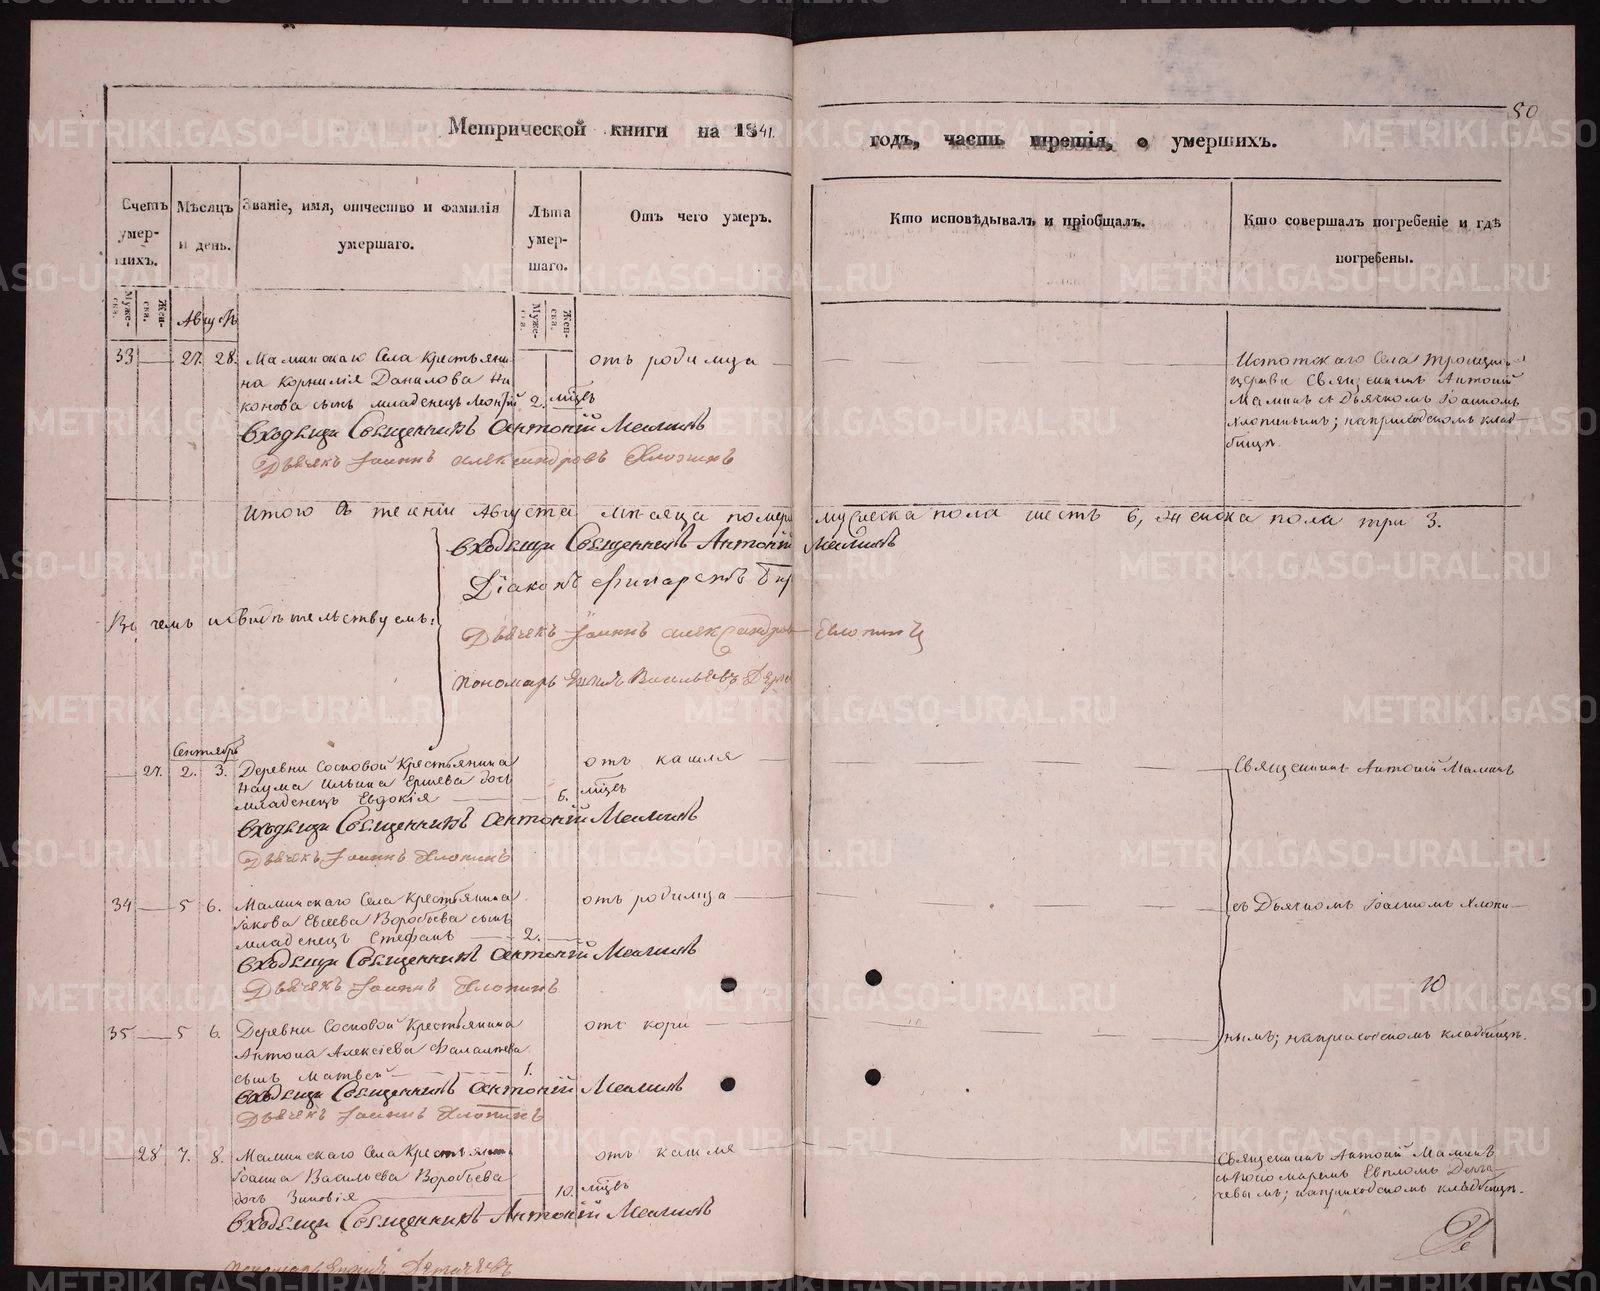 Метрической книги на 1841. годъ, часть третія, о умершихъ.
80
Счетъ умершихъ.
Мѣсяцъ и день.
Званіе, имя, отчество и фамилія умершаго.
Лѣта умершаго.
Отъ чего умеръ.
Кто исповѣдывалъ и пріобщалъ.
Кто совершалъ погребеніе и гдѣ погребены.
Мужеска.
Женска.
Августъ
Мужеска.
Женска.
33 — 27. 28. Маминскаго Села Крестьяни
на Корнилія Данилова
конова сынъ младенецъ 2. мѣцъ
отъ родимца
Села Троицкой
церкви Священникъ Антоній
Маминъ съ Дьячкомъ Іоанномъ
Хлопинымъ; на приходскомъ клад
бищѣ.
Входящи Священникъ Антоній Маминъ
Дьячекъ Іоаннъ Александровъ Хлопинъ
Итого въ теченіи Августа мѣсяца помер мужеска пола шесть 6, женска пола три 3.
Въ чемъ и свидѣтельствуемъ:
Входящи Священникъ Антоній Маминъ
Діаконъ
Дьячекъ Іоаннъ Александров Хлопинъ
Пономарь Евплъ Васильевъ
Сентябрь
— 27. 2. 3. Деревни Сосновой Крестьянина
Наума Ильина Ершева дочь
младенецъ Евдокія — 6. мѣцъ
отъ кашля
Священникъ Антоній Маминъ
Входящи Священникъ Антоній Маминъ
Дьячекъ Іоаннъ Хлопинъ
34 — 5 6. Маминскаго Села Крестьянина
Іакова Евсеева Воробьева сынъ
младенецъ Стефанъ — 2. —
отъ родимца
съ Дьячкомъ Іоанномъ Хлопи—
Входящи Священникъ Антоній Маминъ
Дьячекъ Іоаннъ Хлопинъ
35 — 5 6. Деревни Сосновой Крестьянина
Антона Алексіева Фалалеева
сынъ Матвей — 1.
отъ кори
нымъ; на приходскомъ кладбищѣ.
Входящи Священникъ Антоній Маминъ
Дьячекъ Іоаннъ Хлопинъ
— 28 7. 8. Маминскаго Села Крестьянина
Іоанна Васильева Воробьева
дочь Зиновія — 10. мѣцъ
отъ кашля
Священникъ Антоній Маминъ
съ Пономаремъ Евпломъ Дерга
чевымъ; на приходскомъ кладбищѣ.
Входящи Священникъ Антоній Маминъ
Пономарь Евплъ Дергачевъ
METRIKI.GASO-URAL.RU